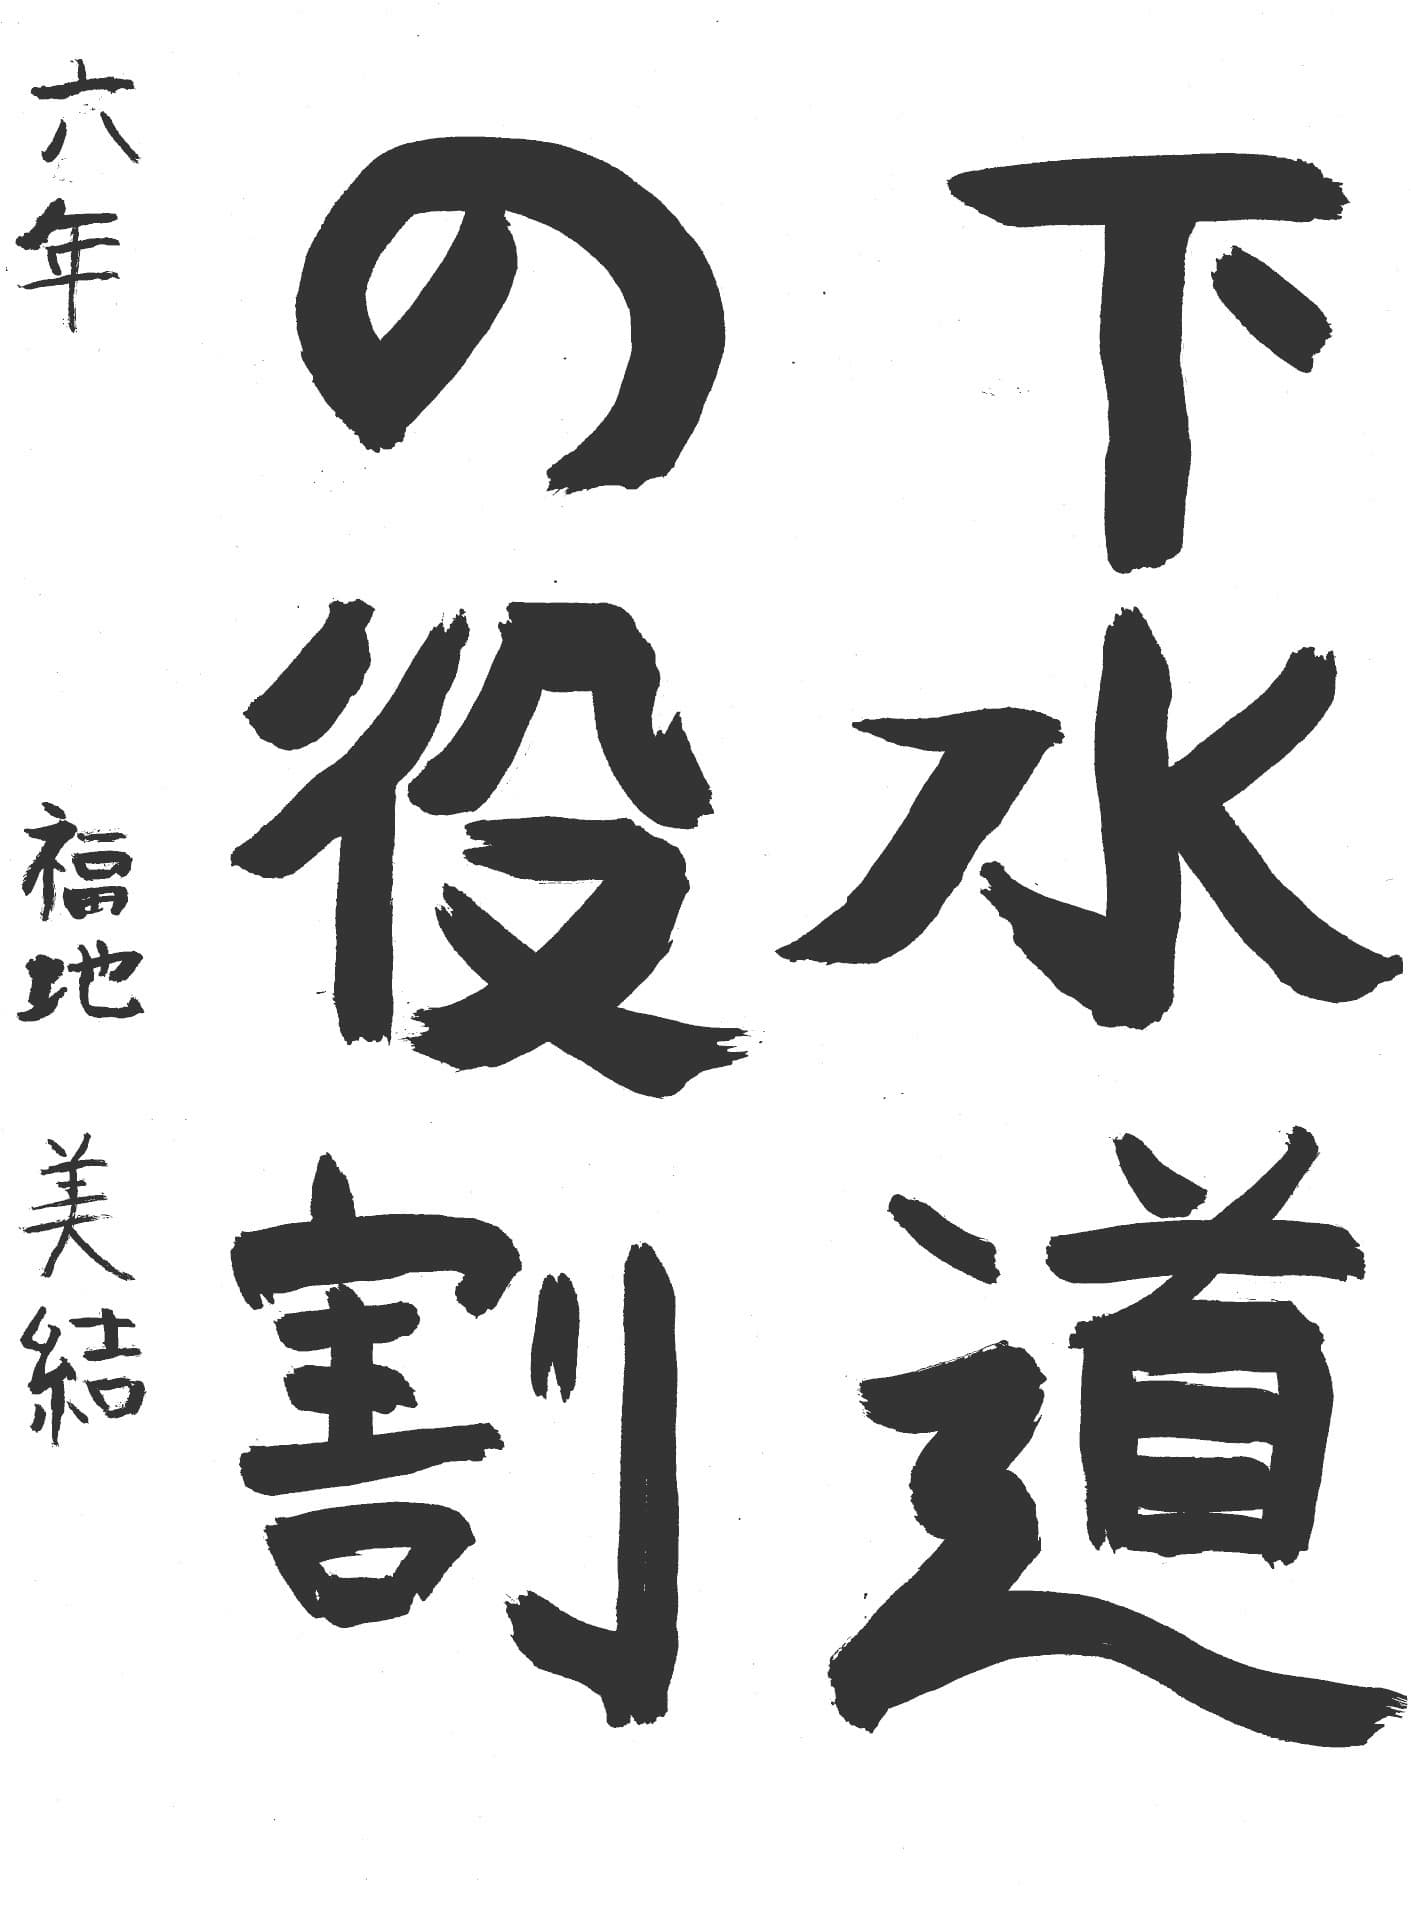 下水道
の役割
六年 福地 美結